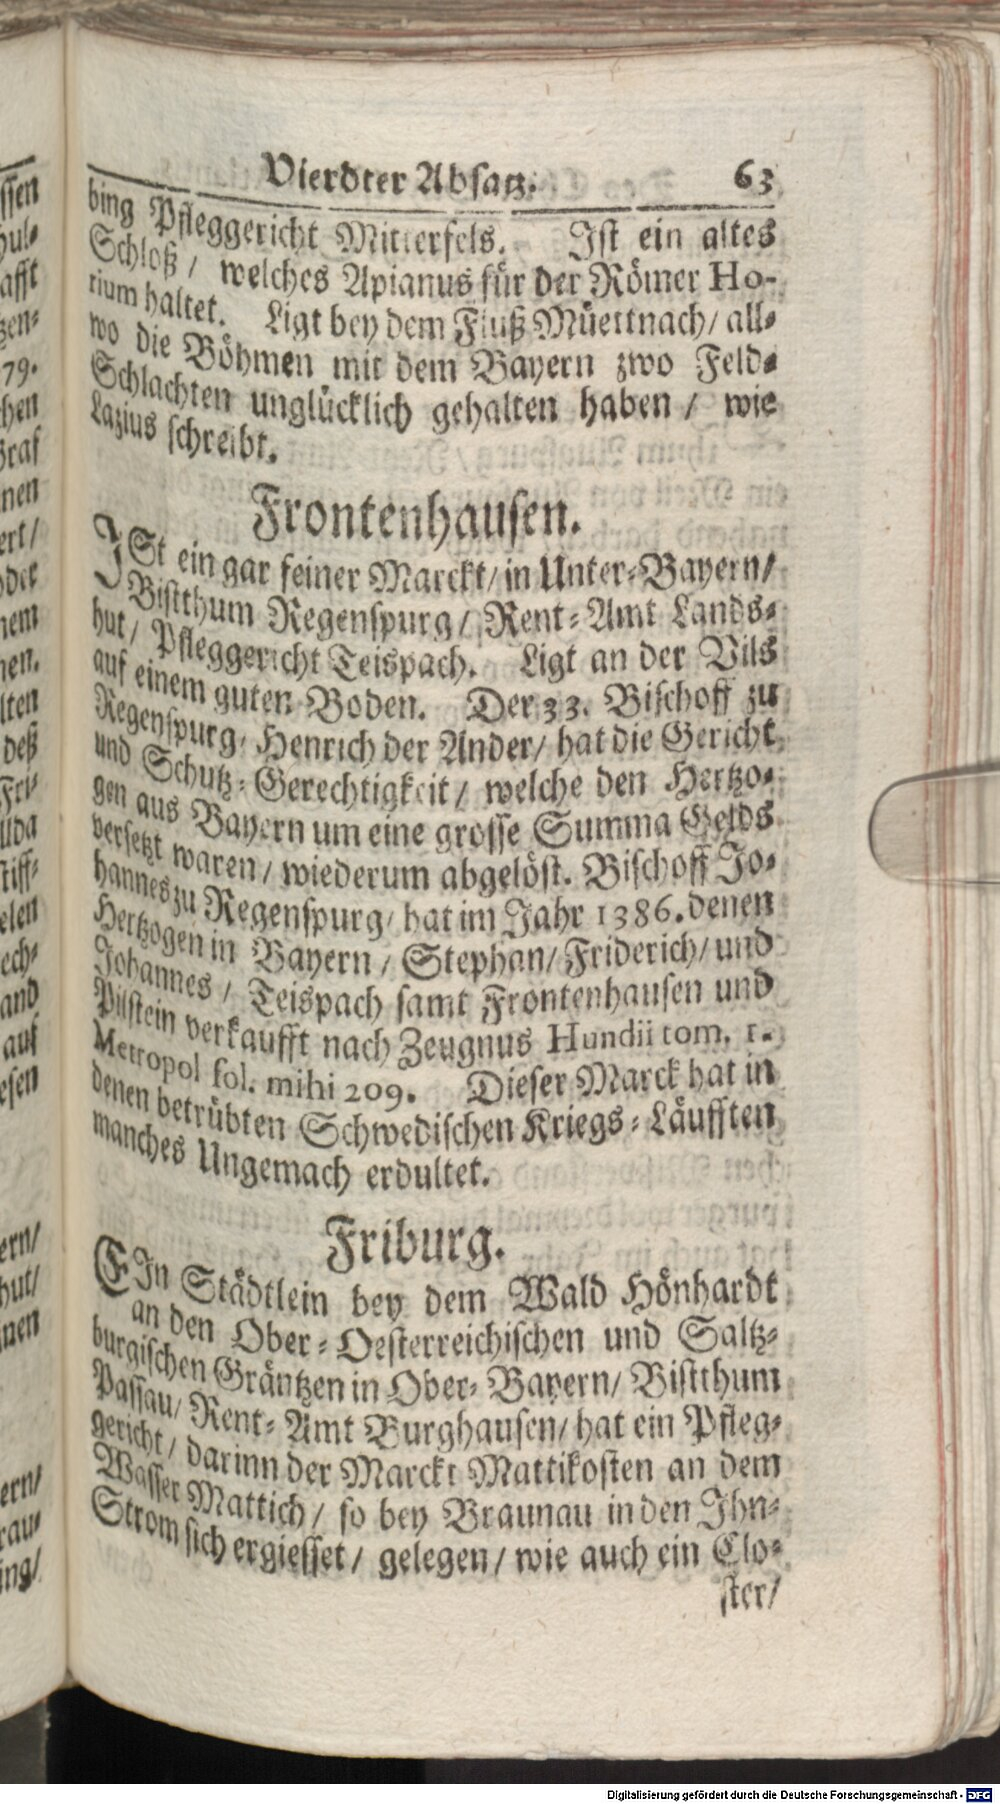 Vierdter Absatz. 63
bing Pfleggericht Mitterfels. Ist ein altes
Schloß / welches Apianus für der Römer Ho-
rium haltet. Ligt bey dem Fluß Müettnach / all-
wo die Böhmen mit dem Bayern zwo Feld-
Schlachten unglücklich gehalten haben / wie
Lazius schreibt.
Frontenhausen.
ISt ein gar feiner Marckt / in Unter-Bayern /
Bistthum Regenspurg / Rent-Amt Lands-
hut / Pfleggericht Teispach. Ligt an der Vils
auf einem guten Boden. Der 33. Bischoff zu
Regenspurg, Henrich der Ander / hat die Gericht
und Schutz-Gerechtigkeit / welche den Hertzo-
gen aus Bayern um eine grosse Summa Gelds
versetzt waren / wiederum abgelöst. Bischoff Jo-
hannes zu Regenspurg / hat im Jahr 1386. denen
Hertzogen in Bayern / Stephan / Friderich / und
Johannes / Teispach samt Frontenhausen und
Pilstein verkaufft nach Zeugnus Hundii tom. 1.
Metropol fol. mihi 209. Dieser Marck hat in
denen betrübten Schwedischen Kriegs-Läufften
manches Ungemach erdultet.
Friburg.
EIn Städtlein bey dem Wald Hönhardt
an den Ober-Oesterreichischen und Saltz-
burgischen Gräntzen in Ober-Bayern / Bistthum
Passau / Rent-Amt Burghausen / hat ein Pfleg-
gericht / darinn der Marckt Mattikosten an dem
Wasser Mattich / so bey Braunau in den Ihn-
Strom sich ergiesset / gelegen / wie auch ein Clo-
ster /
Digitalisierung gefördert durch die Deutsche Forschungsgemeinschaft - DFG